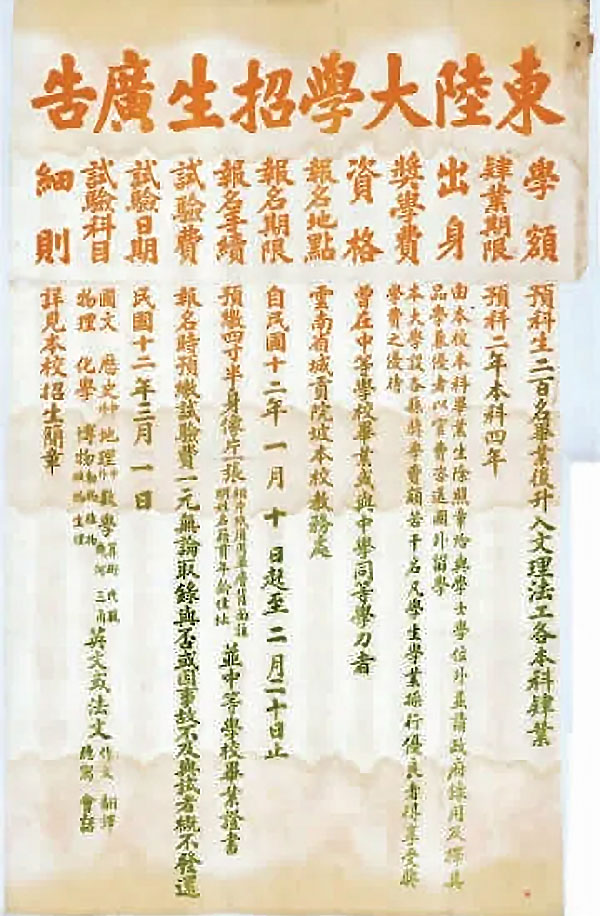 東陸大學招生廣告
學額 預科生二百名畢業後升入文理法工各本科肄業
肄業期限 預科二年本科四年
出身 由本校本科畢業生除照章給與學士學位外並請政府錄用及擇其
品學兼優者以官費咨送國外留學
獎學費 本大學設各縣特費額若干名凡學生學業操行優良者得享受獎
學費之優待
資格 曾在中等學校畢業或與中學同等學力者
報名地點 雲南省城貢院坡本校教務處
報名期限 自民國十二年一月十日起至二月二十日止
報名手續 預繳四寸半身像片一張 並中等學校畢業證書
試驗費 報名時預繳試驗費一元無論取錄與否或因事故不及與試者概不發還
試驗日期 民國十二年三月一日
試驗科目 國文 歷史 地理 數學 算術 代數 幾何 三角 英文或法文 作文 翻譯 默寫 會話
物理 化學 博物 動物 植物 礦物 生理
細則 詳見本校招生簡章